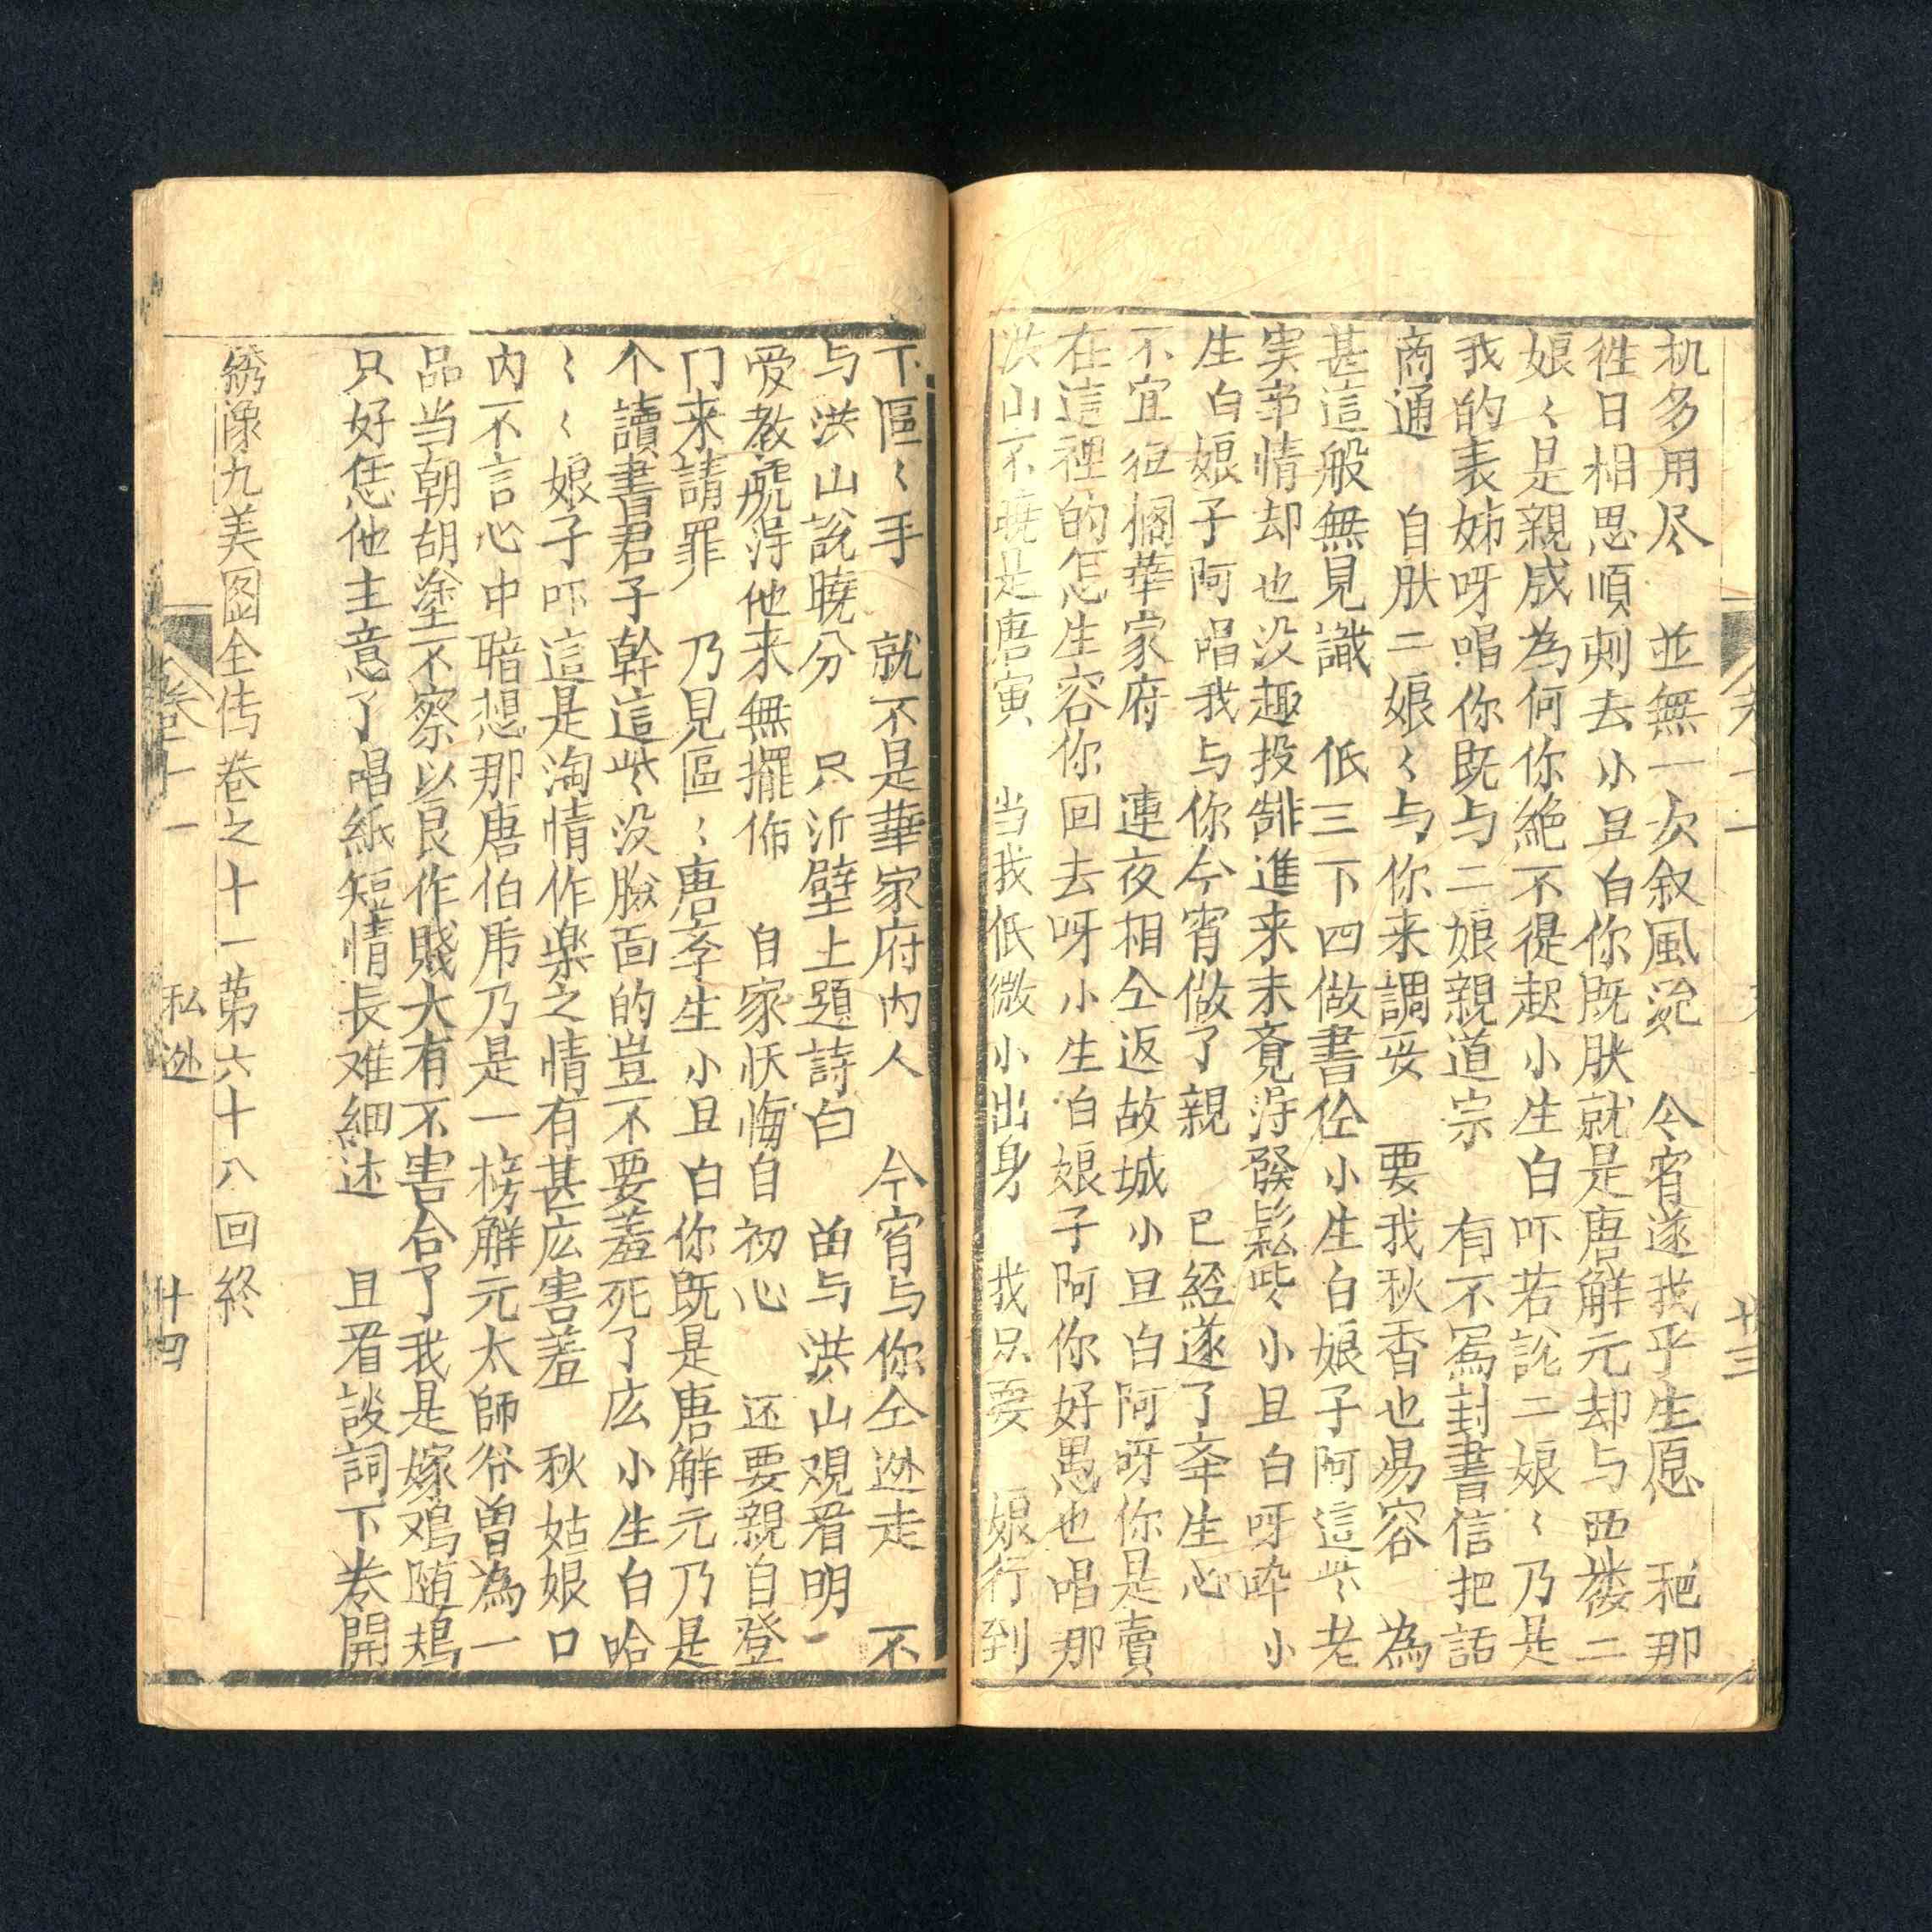 机多用尽　並無一次叙風流　今宵遂我平生愿　秾那
徃日相思順刺去小旦白你既肤就是唐觧元却与西楼二
娘〻是親戚為何你絶不提起小生白吓若說二娘〻乃是
我的表姊呀唱你既与二娘親道宗　有不寫封書信把話
商通　自肤二娘〻与你来調妥　要我秋香也易容　為
甚這般無見識　低三下四做書仝小生白娘子阿這些老
実事情却也没趣投靠進来未竟淂發鬆些小旦白呀啐小
生白娘子阿唱我与你今宵做了親　已經遂了夲生心
不宜躭擱華家府　連夜相仝返故城小旦白阿呀你是賣
在這裡的怎生容你回去呀小生白娘子阿你好愚也唱那
洪山不曉是唐寅　当我低微小出身　我只要　娘行到
下區〻手　就不是華家府内人　今宵与你仝迯走　不
与洪山說曉分　只沂壁上題詩句　畄与洪山观看明
受教㡯淂他来無擺佈　自家恹悔自初心　还要親自登
门来請罪　乃見區〻唐李生小旦白你既是唐觧元乃是
个讀書君子幹這些没臉面的豈不要羞死了広小生白哈
〻〻娘子吓這是淘情作楽之情有甚広害羞　秋姑娘口
内不言心中暗想那唐伯乕乃是一榜觧元太師爷曽為一
品当朝胡塗不察以良作賤大有不害台了我是嫁鸡随鳺
只好恁他主意了唱紙短情長难細述　且看談詞下卷開
綉像九美图全传卷之十一第六十八回終
卷十一　私迯　十四
卷十一　十三